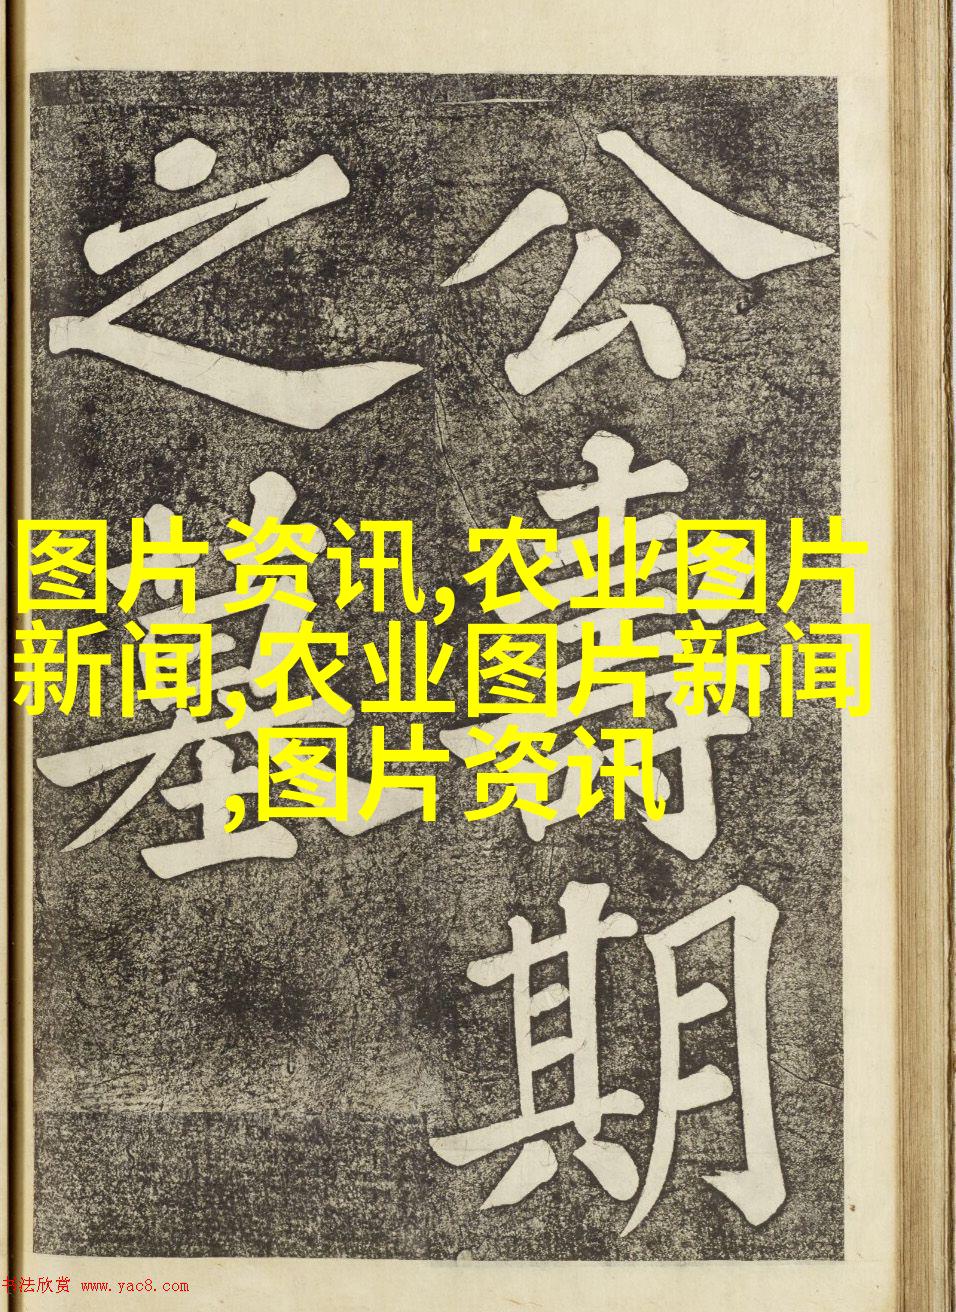 公壽期
之墓
图片资讯,农业图片
新闻,农业图片新闻
,图片资讯
书法欣赏 www.yac8.com